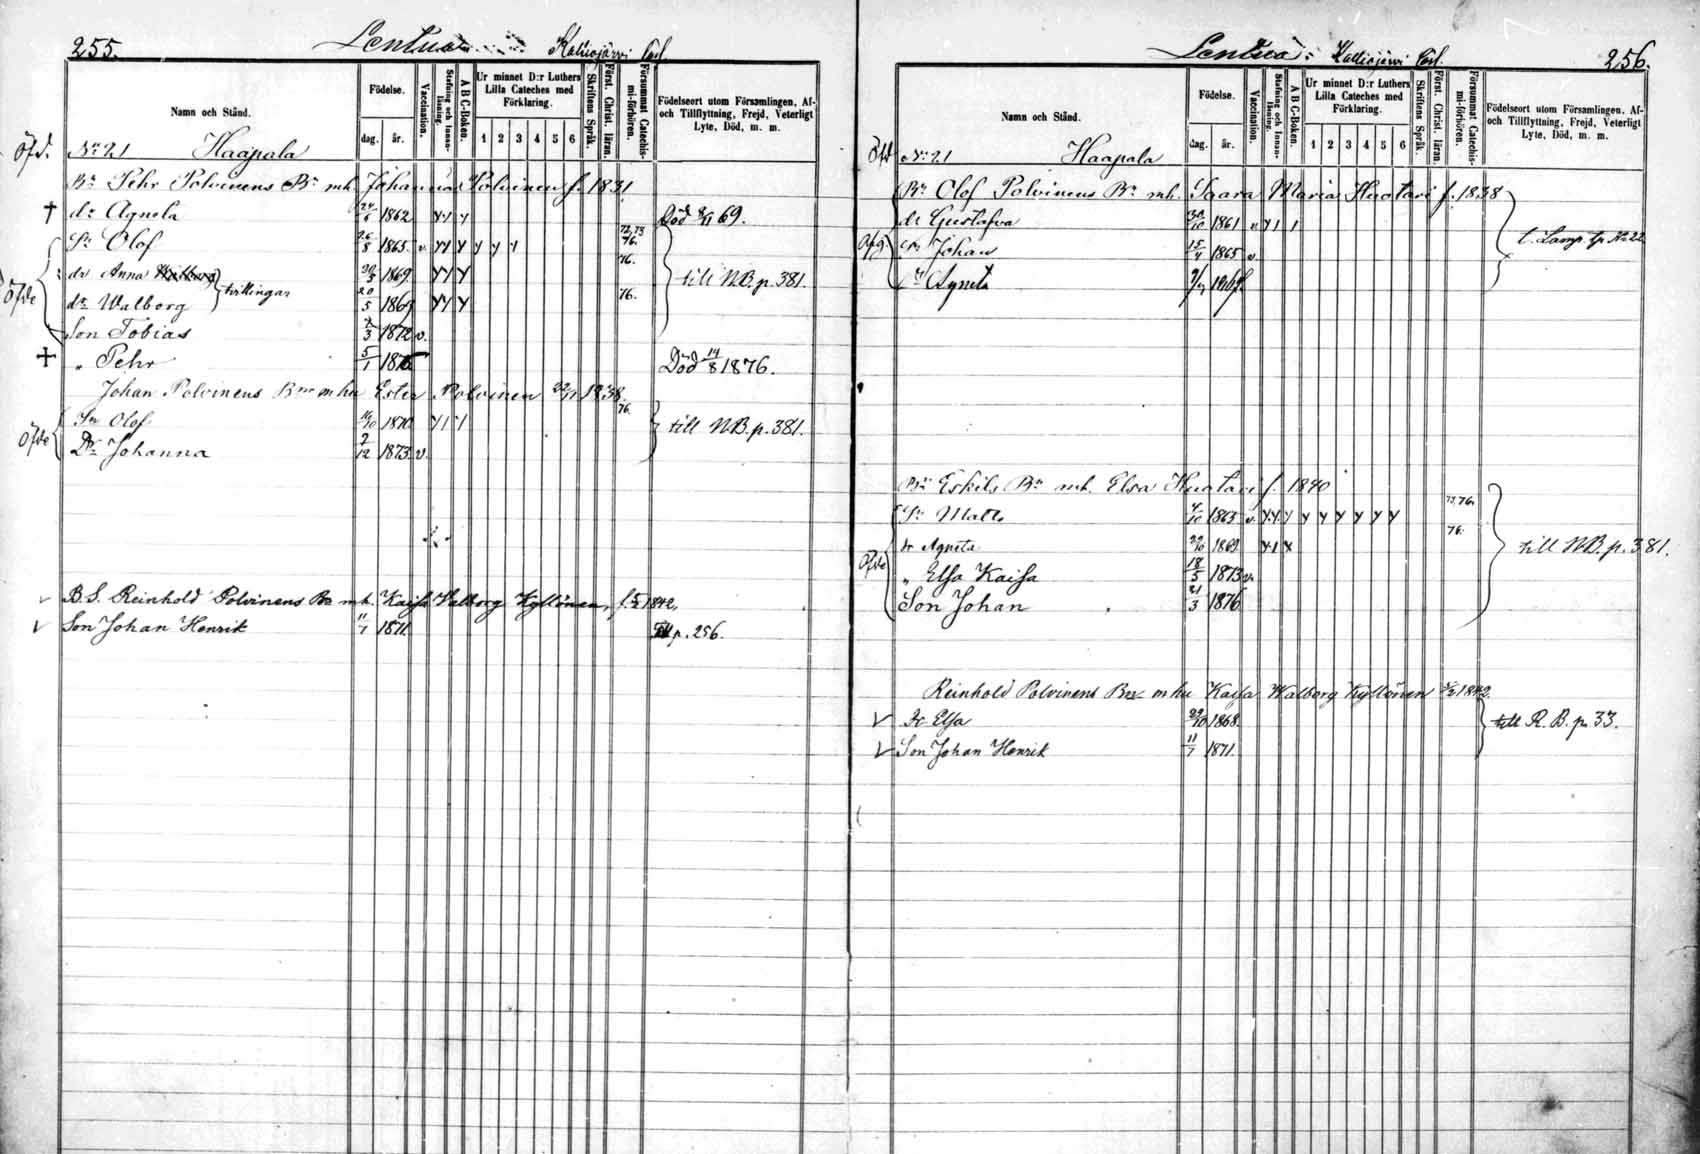 255.
Lentua
Kalliojärvi
Namn och Stånd.
Födelse.
dag.
år.
Vaccination.
Stafning och Innanläsning.
A B C-Boken.
Ur minnet D:r Luthers
Lilla Cateches med
Förklaring.
1 2 3 4 5 6
Skriftens Språk.
Först. Christ. läran.
Försummat Catechismi-förhören.
Födelseort utom Församlingen, Af-
och Tillflyttning, Frejd, Veterligt
Lyte, Död, m. m.
Öfd. No 21 Haapala
Bn Pehr Polvinens Bn mh. Johanna Polvinen f. 1831
† dr Agneta 24/6 1862 Död 8/11 69.
Sn Olof 26/8 1865. v. 72,73 76.
Öfde dr Anna 20/5 1869. 76. till NB. p. 381.
tvillingar
dr Walborg 20/5 1869 76.
Son Tobias 1872 v.
† " Pehr 5/1 1876 Död 14/8 1876.
Johan Polvinens Bn m hu Ester Polvinen 1838.
Öfde Sn Olof 1870 76. till NB. p. 381.
Dr Johanna 2/12 1873. v.
B. S. Reinhold Polvinens Bn mh. Kaisa Walborg Kyllönen, f. 5/2 1842,
Son Johan Henrik 11/7 1871. p. 256.
Lentua: Kalliojärvi
256.
Namn och Stånd.
Födelse.
dag.
år.
Vaccination.
Stafning och Innanläsning.
A B C-Boken.
Ur minnet D:r Luthers
Lilla Cateches med
Förklaring.
1 2 3 4 5 6
Skriftens Språk.
Först. Christ. läran.
Försummat Catechismi-förhören.
Födelseort utom Församlingen, Af-
och Tillflyttning, Frejd, Veterligt
Lyte, Död, m. m.
Öfd No 21 Haapala
Bn Olof Polvinens Bn mh. Saara Maria Huotari f. 1838
dr Gustafva 1861 v
Sn Johan 15/4 1865 v.
dr Agneta
Bn Eskils Bn mh. Elsa Huotari f. 1840
Sn Matts 4/10 1865 v. 76.
Öfde dr Agneta 1869 76. till NB. p. 381.
" Elsa Kaisa 18/5 1873 v.
Son Johan 21/3 1876
Reinhold Polvinens Bn m hu Kaisa Walborg Kyllönen 5/2 1842.
Dr Elsa 1868. till R. B. p. 33.
Son Johan Henrik 11/7 1871.